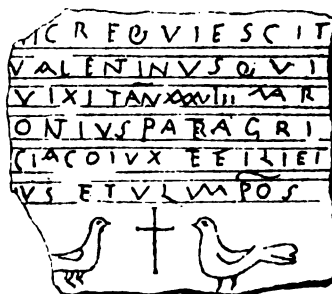 HIC REQVIESCIT
VALENTINVS QVI
VIXIT AN XXXVII MAR
ONIVS PATRAGRI
CIACOIVX EEILIEI
IVS ETVLVM POS